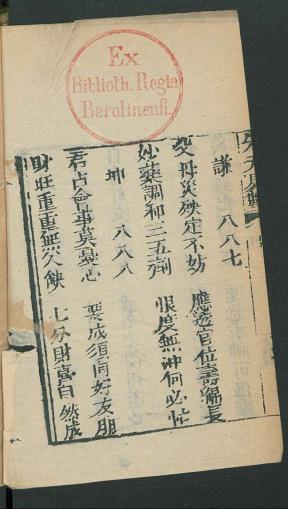 Ex
Biblioth. Regia
Berolinensi.
謙 八八七
父母災殃定不妨 應透官位壽緜長
妙藥調和三五劑 限度無冲何必忙
坤 八八八
君占會事莫憂心 要成須問好友朋
財旺重重無欠缺 七分財喜自然成